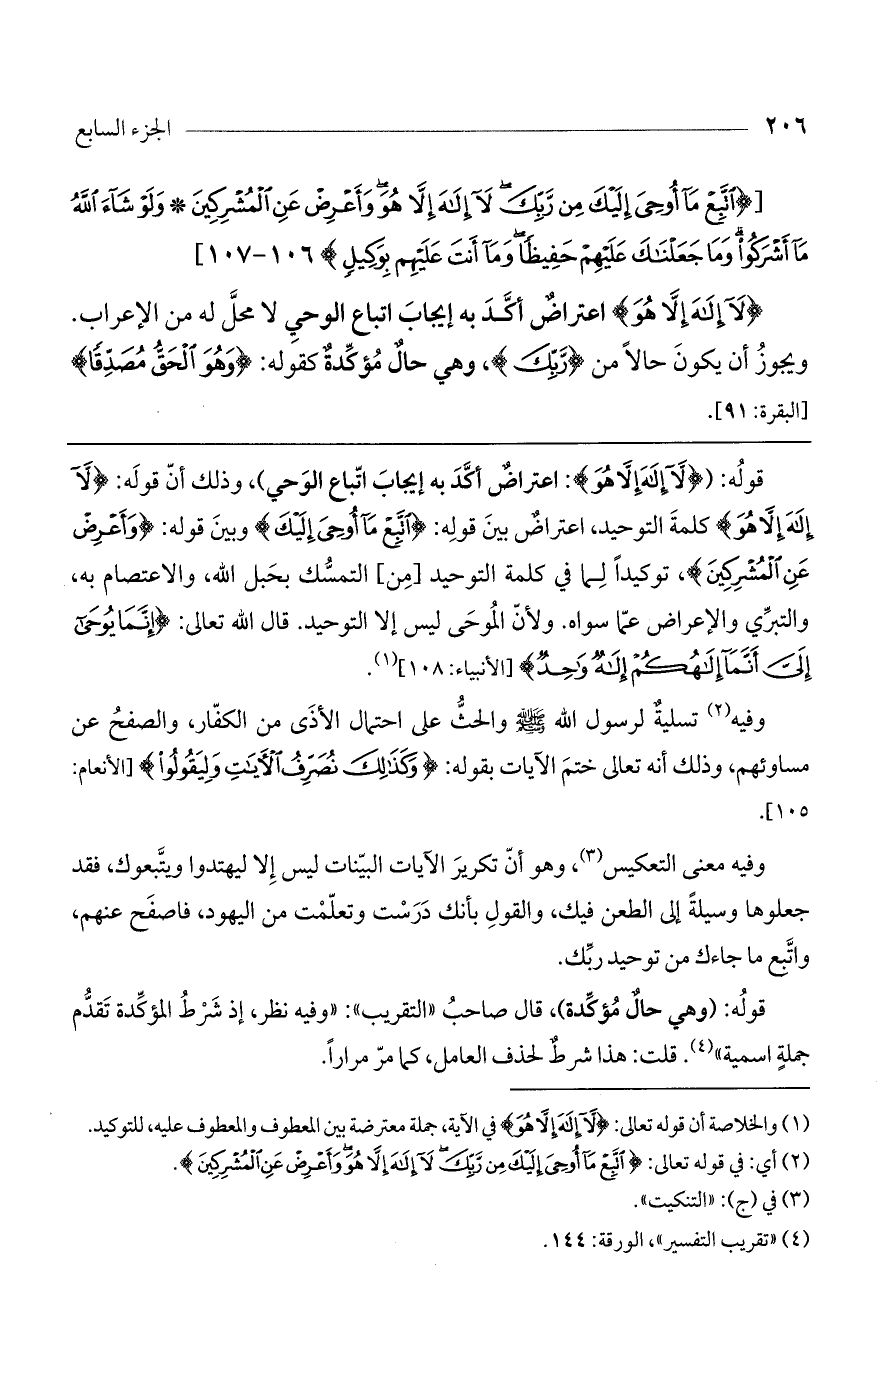 ٢٠٦ الجزء السابع
[﴿ٱتَّبِعْ مَآ أُوحِىَ إِلَيْكَ مِن رَّبِّكَ ۖ لَآ إِلَـٰهَ إِلَّا هُوَ ۖ وَأَعْرِضْ عَنِ ٱلْمُشْرِكِينَ * وَلَوْ شَآءَ ٱللَّهُ
مَآ أَشْرَكُوا۟ ۗ وَمَا جَعَلْنَـٰكَ عَلَيْهِمْ حَفِيظًا ۖ وَمَآ أَنتَ عَلَيْهِم بِوَكِيلٍ﴾ ١٠٦-١٠٧]
﴿لَآ إِلَـٰهَ إِلَّا هُوَ﴾ اعتراضٌ أكَّدَ به إيجابَ اتباع الوحيِ لا محلَّ له من الإعراب.
ويجوزُ أن يكونَ حالاً من ﴿رَّبِّكَ﴾، وهي حالٌ مُؤكِّدةٌ كقوله: ﴿وَهُوَ ٱلْحَقُّ مُصَدِّقًا﴾
[البقرة: ٩١].
قولُه: (﴿لَآ إِلَـٰهَ إِلَّا هُوَ﴾: اعتراضٌ أكَّدَ به إيجابَ اتّباع الوَحي)، وذلك أنّ قولَه: ﴿لَآ
إِلَـٰهَ إِلَّا هُوَ﴾ كلمةَ التوحيد، اعتراضٌ بينَ قولِه: ﴿ٱتَّبِعْ مَآ أُوحِىَ إِلَيْكَ﴾ وبينَ قوله: ﴿وَأَعْرِضْ
عَنِ ٱلْمُشْرِكِينَ﴾، توكيداً لِما في كلمة التوحيد [مِن] التمسُّك بحَبل الله، والاعتصام به،
والتبرِّي والإعراض عمّا سواه. ولأنّ المُوحَى ليس إلا التوحيد. قال الله تعالى: ﴿إِنَّمَا يُوحَىٰٓ
إِلَىَّ أَنَّمَآ إِلَـٰهُكُمْ إِلَـٰهٌ وَٰحِدٌ﴾ [الأنبياء: ١٠٨](١).
وفيه(٢) تسليةٌ لرسول الله ﷺ والحثُّ على احتمال الأذَى من الكفّار، والصفحُ عن
مساوئهم، وذلك أنه تعالى ختمَ الآيات بقوله: ﴿وَكَذَٰلِكَ نُصَرِّفُ ٱلْـَٔايَـٰتِ وَلِيَقُولُوا۟﴾ [الأنعام:
١٠٥].
وفيه معنى التعكيس(٣)، وهو أنّ تكريرَ الآيات البيّنات ليس إلا ليهتدوا ويتَّبعوك، فقد
جعلوها وسيلةً إلى الطعن فيك، والقولِ بأنك دَرَسْت وتعلّمْت من اليهود، فاصفَح عنهم،
واتَّبع ما جاءك من توحيد ربِّك.
قولُه: (وهي حالٌ مُؤكِّدة)، قال صاحبُ «التقريب»: «وفيه نظر، إذ شَرْطُ المؤكِّدة تَقدُّم
جملةٍ اسمية»(٤). قلت: هذا شرطٌ لحذف العامل، كما مرّ مراراً.
(١) والخلاصة أن قوله تعالى: ﴿لَآ إِلَـٰهَ إِلَّا هُوَ﴾ في الآية، جملة معترضة بين المعطوف والمعطوف عليه، للتوكيد.
(٢) أي: في قوله تعالى: ﴿ٱتَّبِعْ مَآ أُوحِىَ إِلَيْكَ مِن رَّبِّكَ ۖ لَآ إِلَـٰهَ إِلَّا هُوَ ۖ وَأَعْرِضْ عَنِ ٱلْمُشْرِكِينَ﴾.
(٣) في (ج): «التنكيت».
(٤) «تقريب التفسير»، الورقة: ١٤٤.